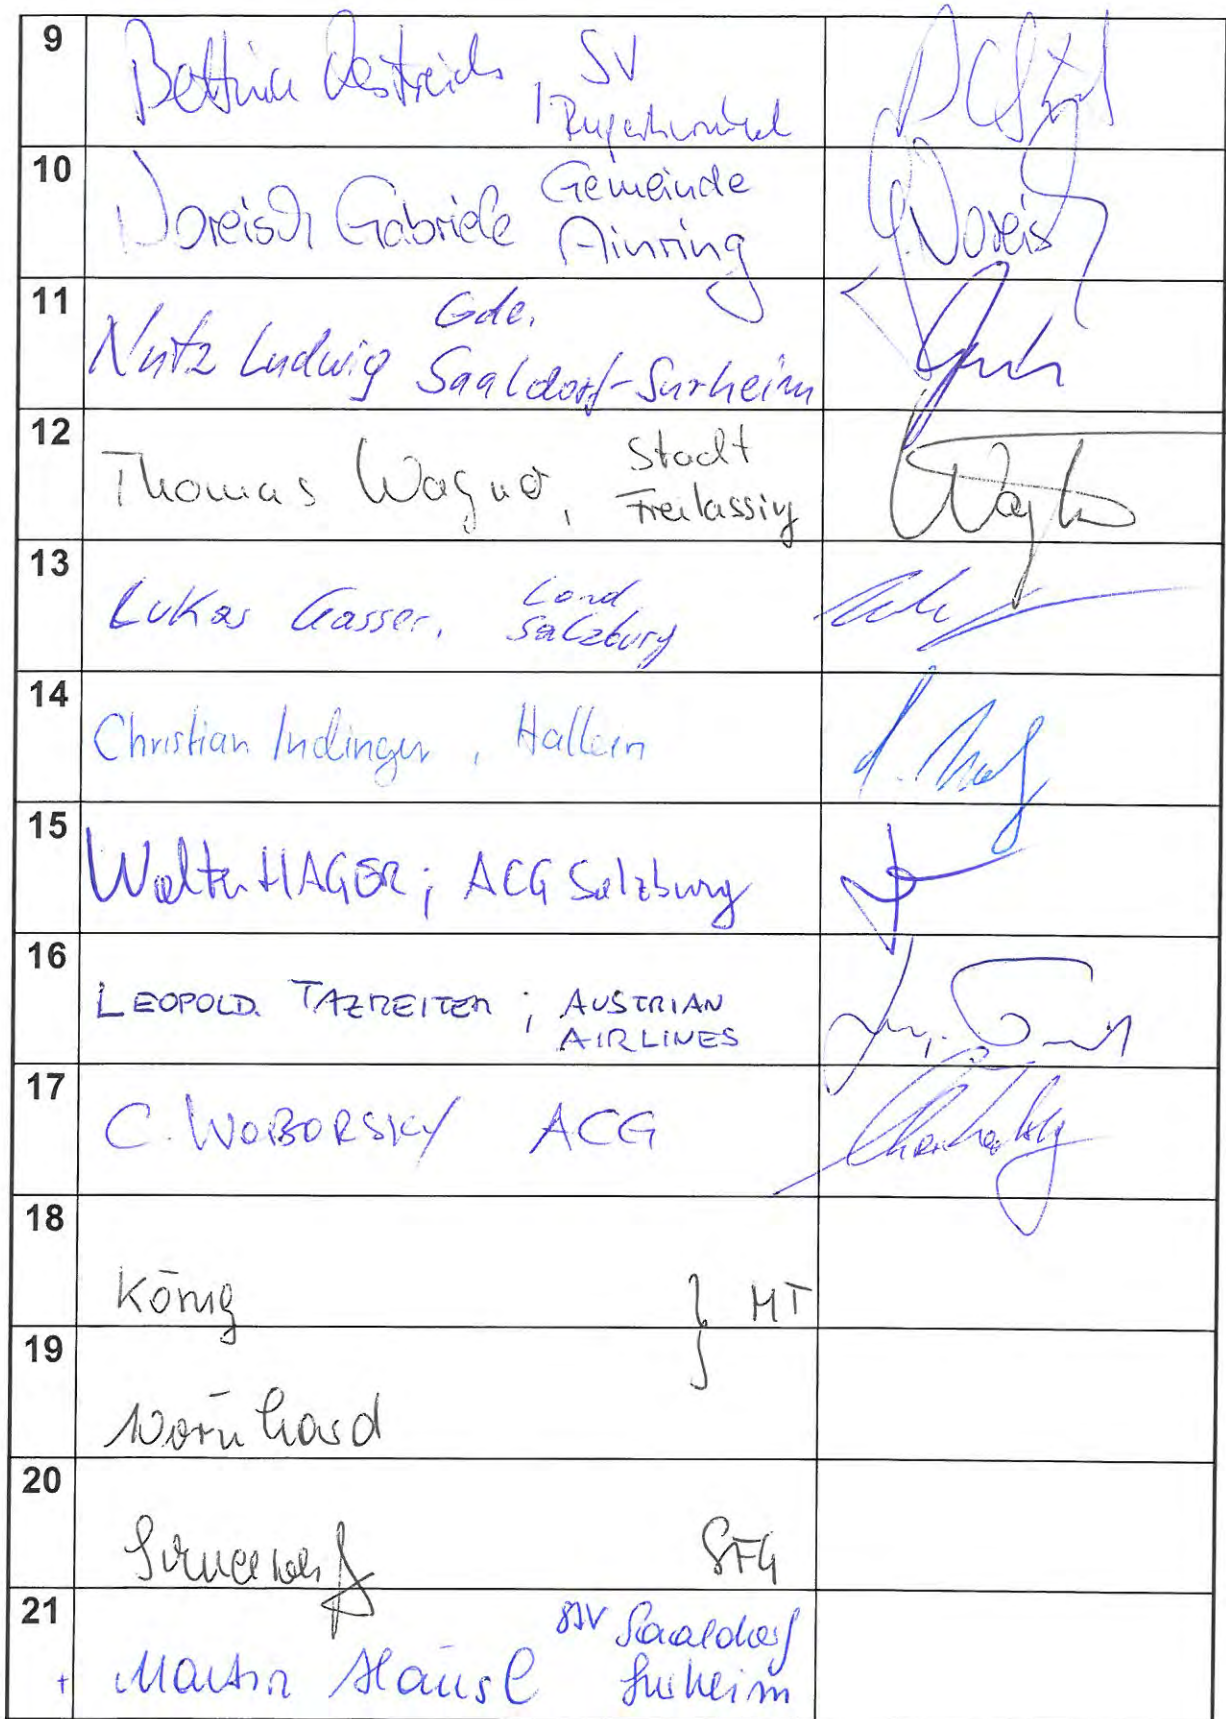 9 Bettina Oestreich, SV
Rupertiwinkel
10 Noreisch Gabriele Gemeinde
Ainring
G. Noreis
11 Gde.
Nutz Ludwig Saaldorf-Surheim
12 Thomas Wagner, Stadt
Freilassing
13 Lukas Gasser, Land
Salzburg
14 Christian Indinger, Hallein
15 Walter HAGER; ACG Salzburg
16 LEOPOLD. TAZREITER; AUSTRIAN
AIRLINES
17 C. WOBORSKY ACG
18
König } MT
19
20
SFG
21 Saaldorf
Martin Häusl Surheim